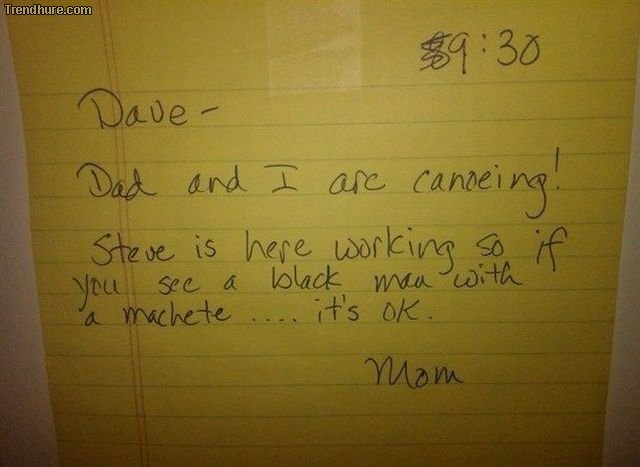 Trendhure.com
9:30
Dave-
Dad and I are canoeing!
Steve is here working so if
you see a black man with
a machete .... it's OK.
Mom